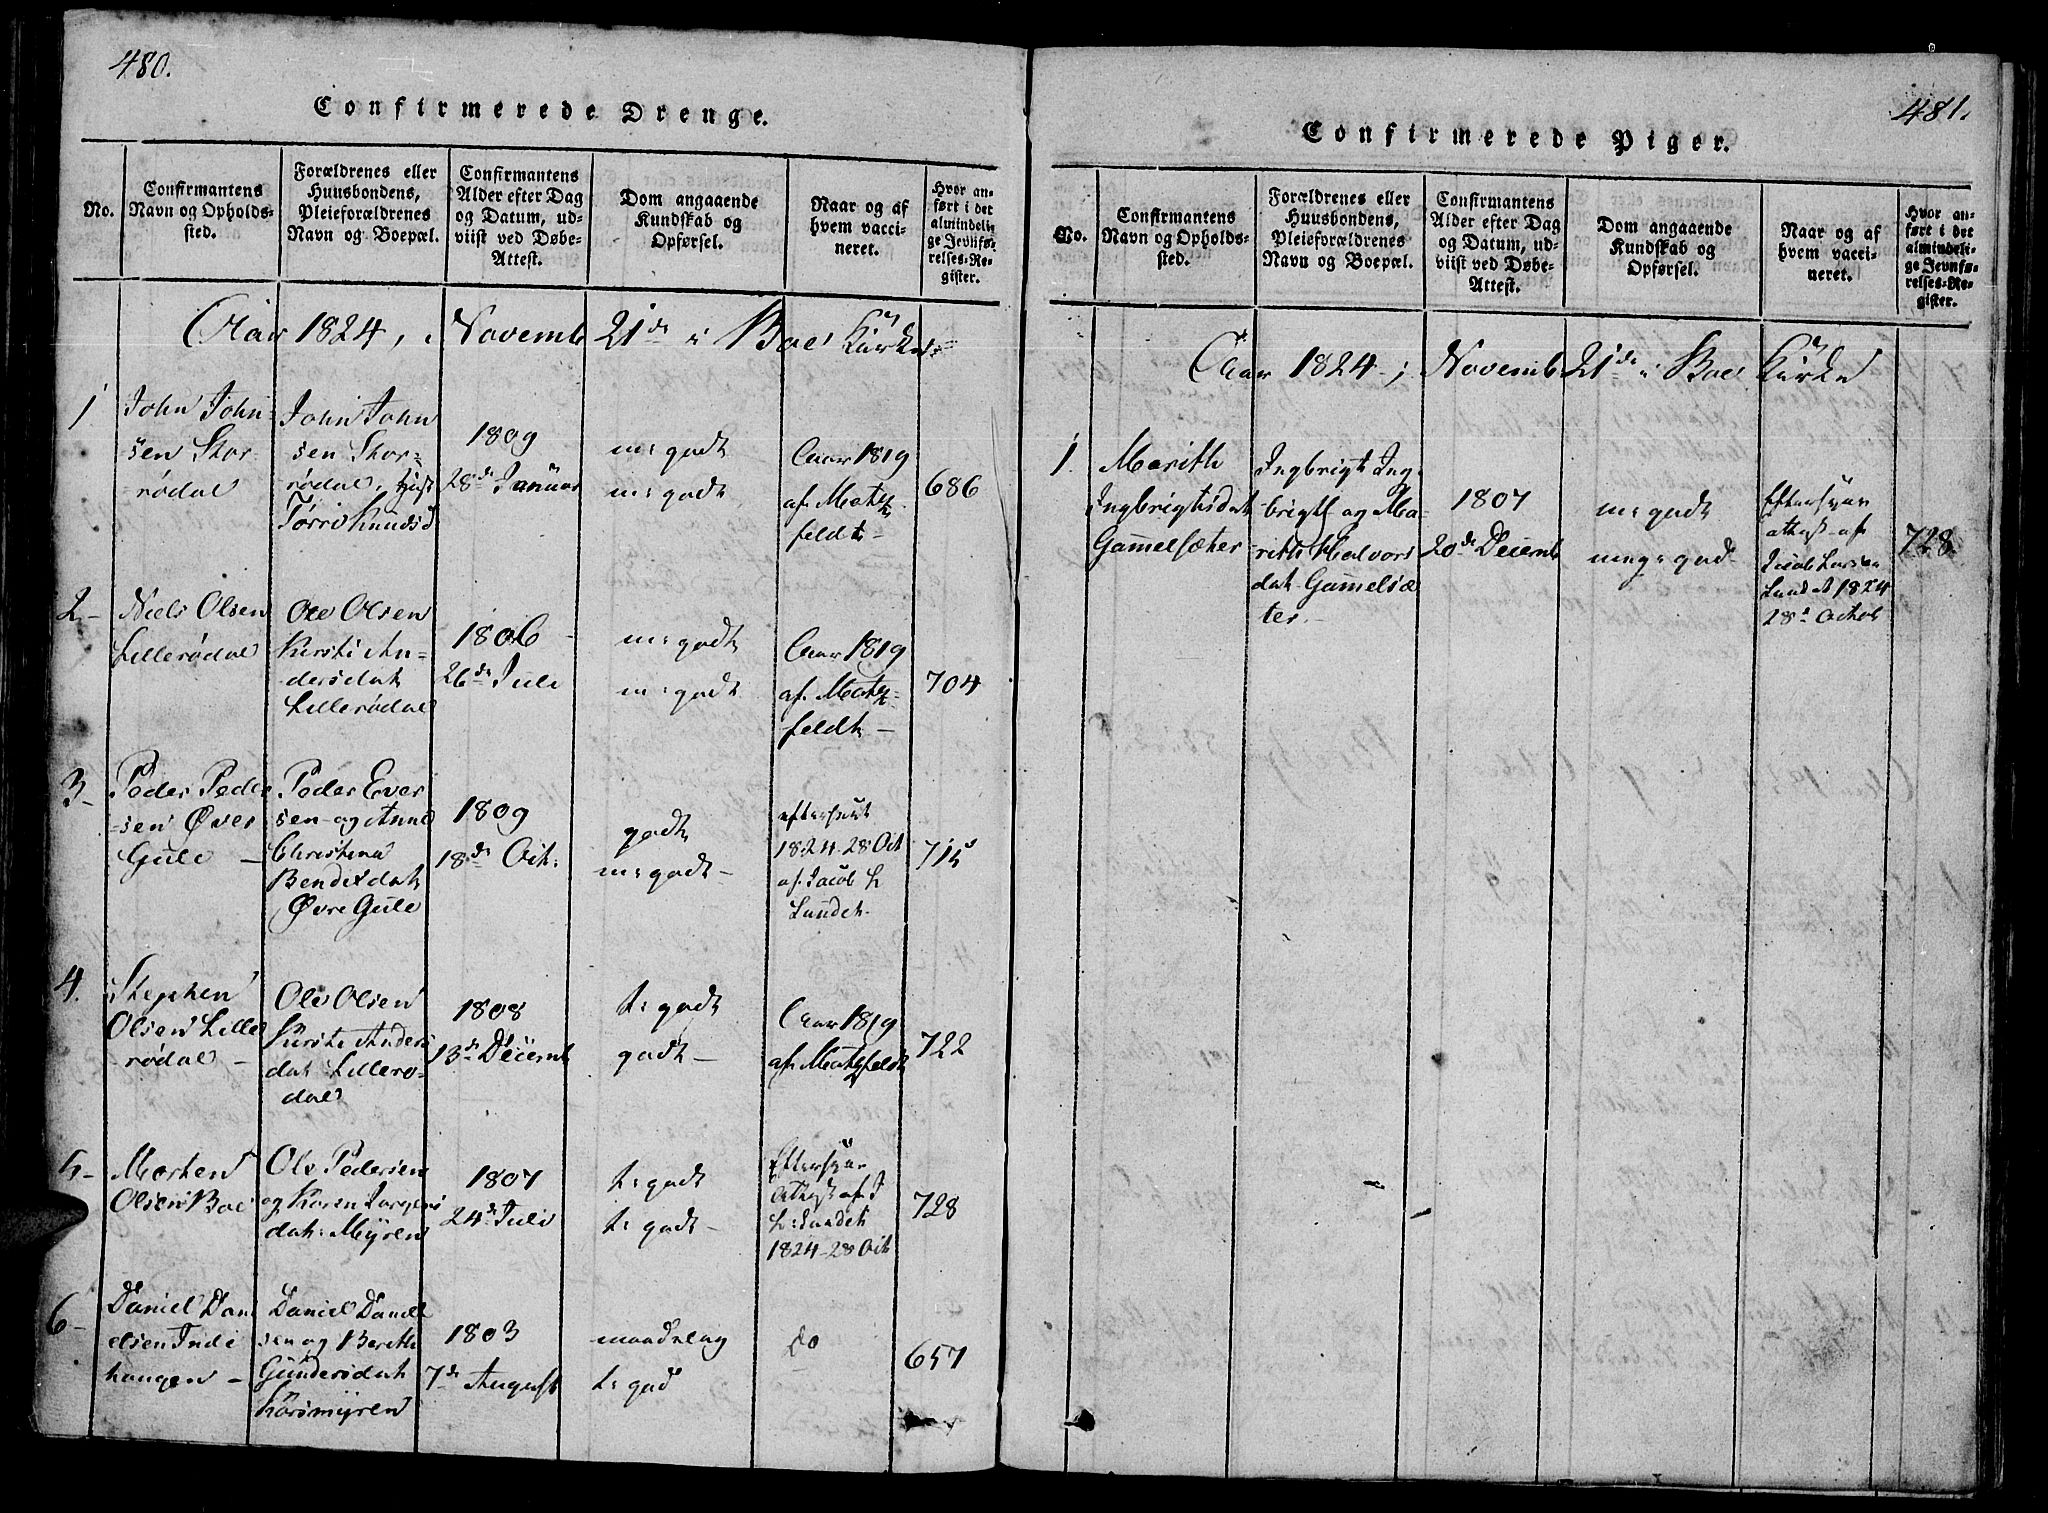 480.
Confirmerede Drenge.
No.
Confirmantens
Navn og Opholds-
sted.
Forældrenes eller
Huusbondens,
Pleieforældrenes
Navn og Boepæl.
Confirmantens
Alder efter Dag
og Datum, ud-
viist ved Døbe-
Attest.
Dom angaaende
Kundskab og
Opførsel.
Naar og af
hvem vacci-
neret.
Hvor an-
ført i det
almindeli-
ge Jevnfø-
relses-Re-
gister.
Aar 1824, Novemb 21de i Boe Kirke
1
John John
sen Stor-
rødal
John John
sen Stor-
rødal,
Torri Knudsd
1809
28de Januar
m: godt
m: godt
Aar 1819
af Matz
feldt -
686
2-
Niels Olsen
Lillerødal
Ole Olsen
Kirsti An-
dersdat
Lillerødal
1806
26de Juli
m: godt
m: godt
Aar 1819
af Matz-
feldt -
704
3-
Peder Peder
sen Øver
Gule -
Peder Ever
sen og Anne
Christina
Bendixdat
Øvre Gule
1809
18de Oct:
godt
m: godt -
1824 28 Oct
af Jacob L
Lundet.
715
4.
Stephen
Olsen Lille
rødal -
Ole Olsen
Kirsti Anders
dat Lillerø-
dal
1808
13de Decemb
t: godt
godt -
Aar 1819
af Matzfeldt
722
5-
Morten
Olsen Boe
Ole Pedersen
og Karen Jørgens
dat: Myren
1807
24de Juli
t: godt
t: godt -
Eftersyns
Attest af J
L: Lundet
1824 - 28 Oct
728
6-
Daniel Dani
elsen Inde
haugen -
Daniel Daniel
sen og Berethe
Gundersdat
Korsmyren
1803
7de August
maadelag
t: god
do
657
481.
Confirmerede Piger.
No.
Confirmantens
Navn og Opholds-
sted.
Forældrenes eller
Huusbondens,
Pleieforældrenes
Navn og Boepæl.
Confirmantens
Alder efter Dag
og Datum, ud-
viist ved Døbe-
Attest.
Dom angaaende
Kundskab og
Opførsel.
Naar og af
hvem vacci-
neret.
Hvor an-
ført i det
almindeli-
ge Jevnfø-
relses-Re-
gister.
Aar 1824 - ; Novemb 21de i Boe Kirke
1.
Marith
Ingbrigtsdat
Gammelsæter
Ingbrigt Ing-
brigts og Ma-
rith Halvors
dat Gammelsæ
ter. -
1807
20de Decemb
m: godt
meg: god
Eftersyns
attest af
Jacob Larsen
Lundet 1824
28de Octob
728.